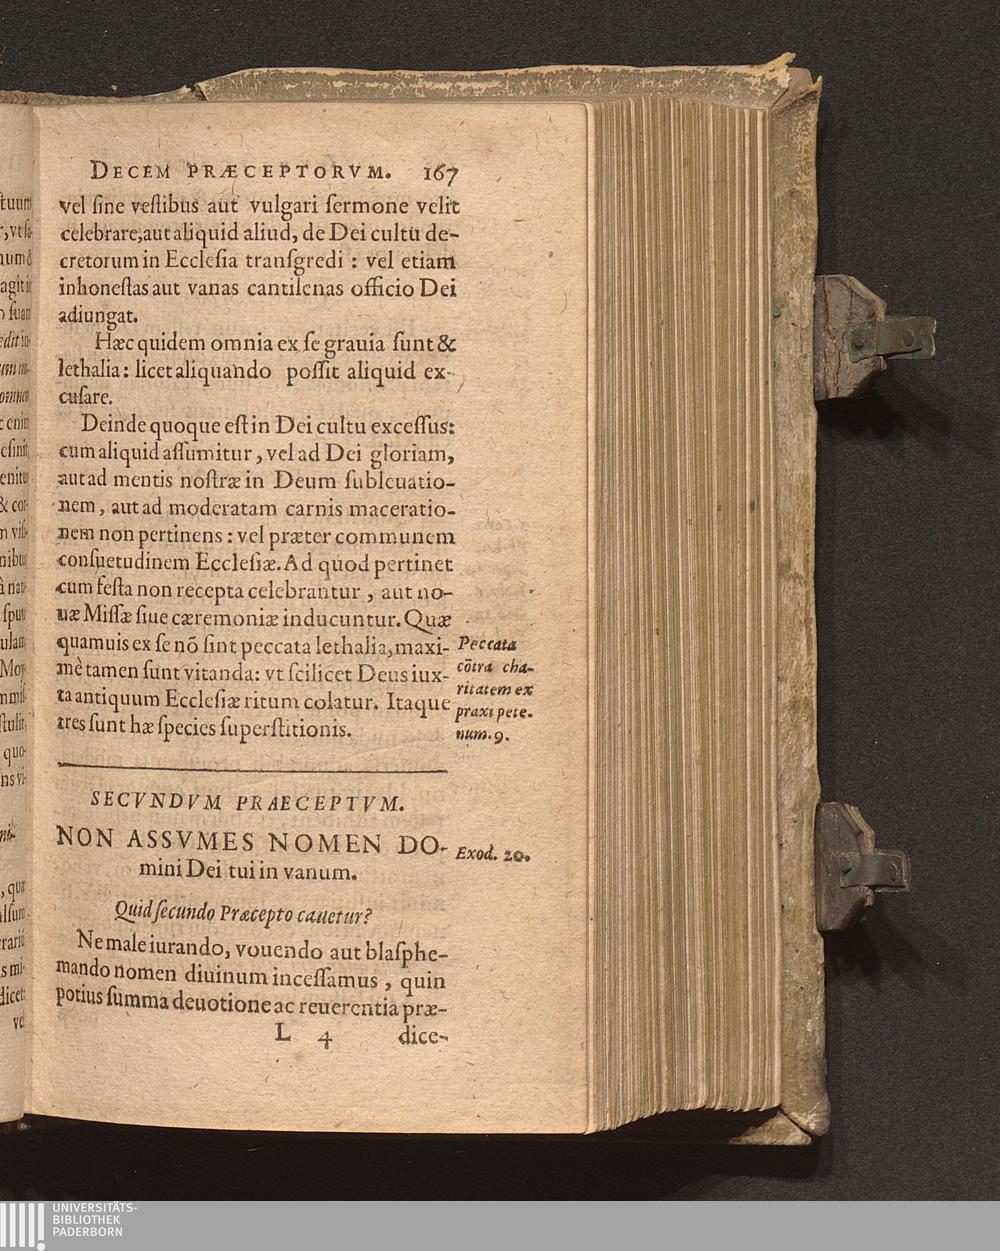 DECEM PRÆCEPTORVM. 167
vel ſine veſtibus aut vulgari ſermone velit
celebrare, aut aliquid aliud, de Dei cultu de-
cretorum in Eccleſia tranſgredi : vel etiam
inhoneſtas aut vanas cantilenas officio Dei
adiungat.
Hæc quidem omnia ex ſe grauia ſunt &
lethalia: licet aliquando poſſit aliquid ex-
cuſare.
Deinde quoque eſt in Dei cultu exceſſus:
cum aliquid aſſumitur, vel ad Dei gloriam,
aut ad mentis noſtræ in Deum ſubleuatio-
nem, aut ad moderatam carnis maceratio-
nem non pertinens : vel præter communem
conſuetudinem Eccleſiæ. Ad quod pertinet
cum feſta non recepta celebrantur, aut no-
uæ Miſſæ ſiue cæremoniæ inducuntur. Quæ
quamuis ex ſe nõ ſint peccata lethalia, maxi-
mè tamen ſunt vitanda: vt ſcilicet Deus iux-
ta antiquum Eccleſiæ ritum colatur. Itaque
tres ſunt hæ ſpecies ſuperſtitionis.
Peccata
cõtra cha-
ritatem ex
praxi pœte.
num. 9.
SECVNDVM PRAECEPTVM.
NON ASSVMES NOMEN DO-
mini Dei tui in vanum.
Exod. 20.
Quid ſecundo Præcepto cauetur?
Ne male iurando, vouendo aut blaſphe-
mando nomen diuinum inceſſamus, quin
potius ſumma deuotione ac reuerentia præ-
L 4 dice-
UNIVERSITÄTS-
BIBLIOTHEK
PADERBORN